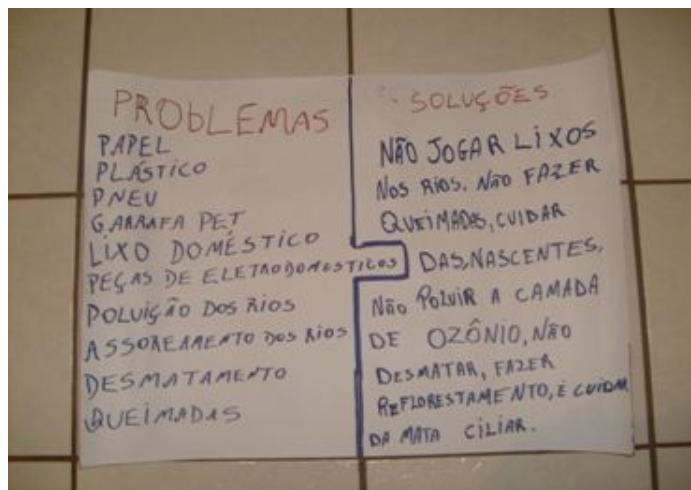 PROBLEMAS
PAPEL
PLÁSTICO
PNEU
GARRAFA PET
LIXO DOMÉSTICO
PEÇAS DE ELETRODOMESTICOS
POLUIÇÃO DOS RIOS
ASSOREAMENTO DOS RIOS
DESMATAMENTO
QUEIMADAS
SOLUÇÕES
NÃO JOGAR LIXOS
NOS RIOS, NÃO FAZER
QUEIMADAS, CUIDAR
DAS NASCENTES,
NÃO POLUIR A CAMADA
DE OZÔNIO, NÃO
DESMATAR, FAZER
REFLORESTAMENTO, E CUIDAR
DA MATA CILIAR.